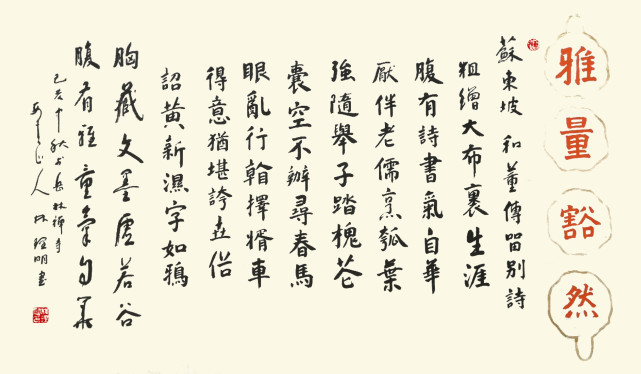 雅量豁然
蘇東坡 和董傳留別詩
粗繒大布裹生涯
腹有詩書氣自華
厭伴老儒烹瓠葉
強隨舉子踏槐花
囊空不辦尋春馬
眼亂行翰擇婿車
得意猶堪誇世俗
詔黃新濕字如鴉
胸藏文墨虛若谷
腹有雅量氣自華
己亥中秋於岳林禪寺
人林明書